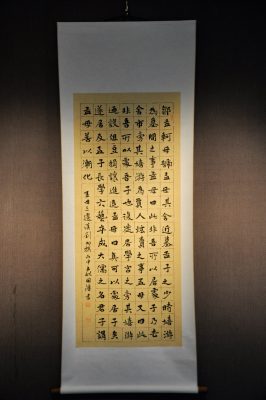 鄒孟軻母號孟母其舍近墓孟子之少時嬉遊
為墓間之事孟母曰此非吾所以居處子乃去
舍市旁其嬉遊為賈人炫賣之事孟母又曰此
非吾所以處吾子也復徙居學宮之旁其嬉遊
乃設俎豆揖讓進退孟母曰真可以處居子矣
遂居及孟子長學六藝卒成大儒之名君子謂
孟母善以漸化 孟母三遷漢劉向撰 丙申 國 書